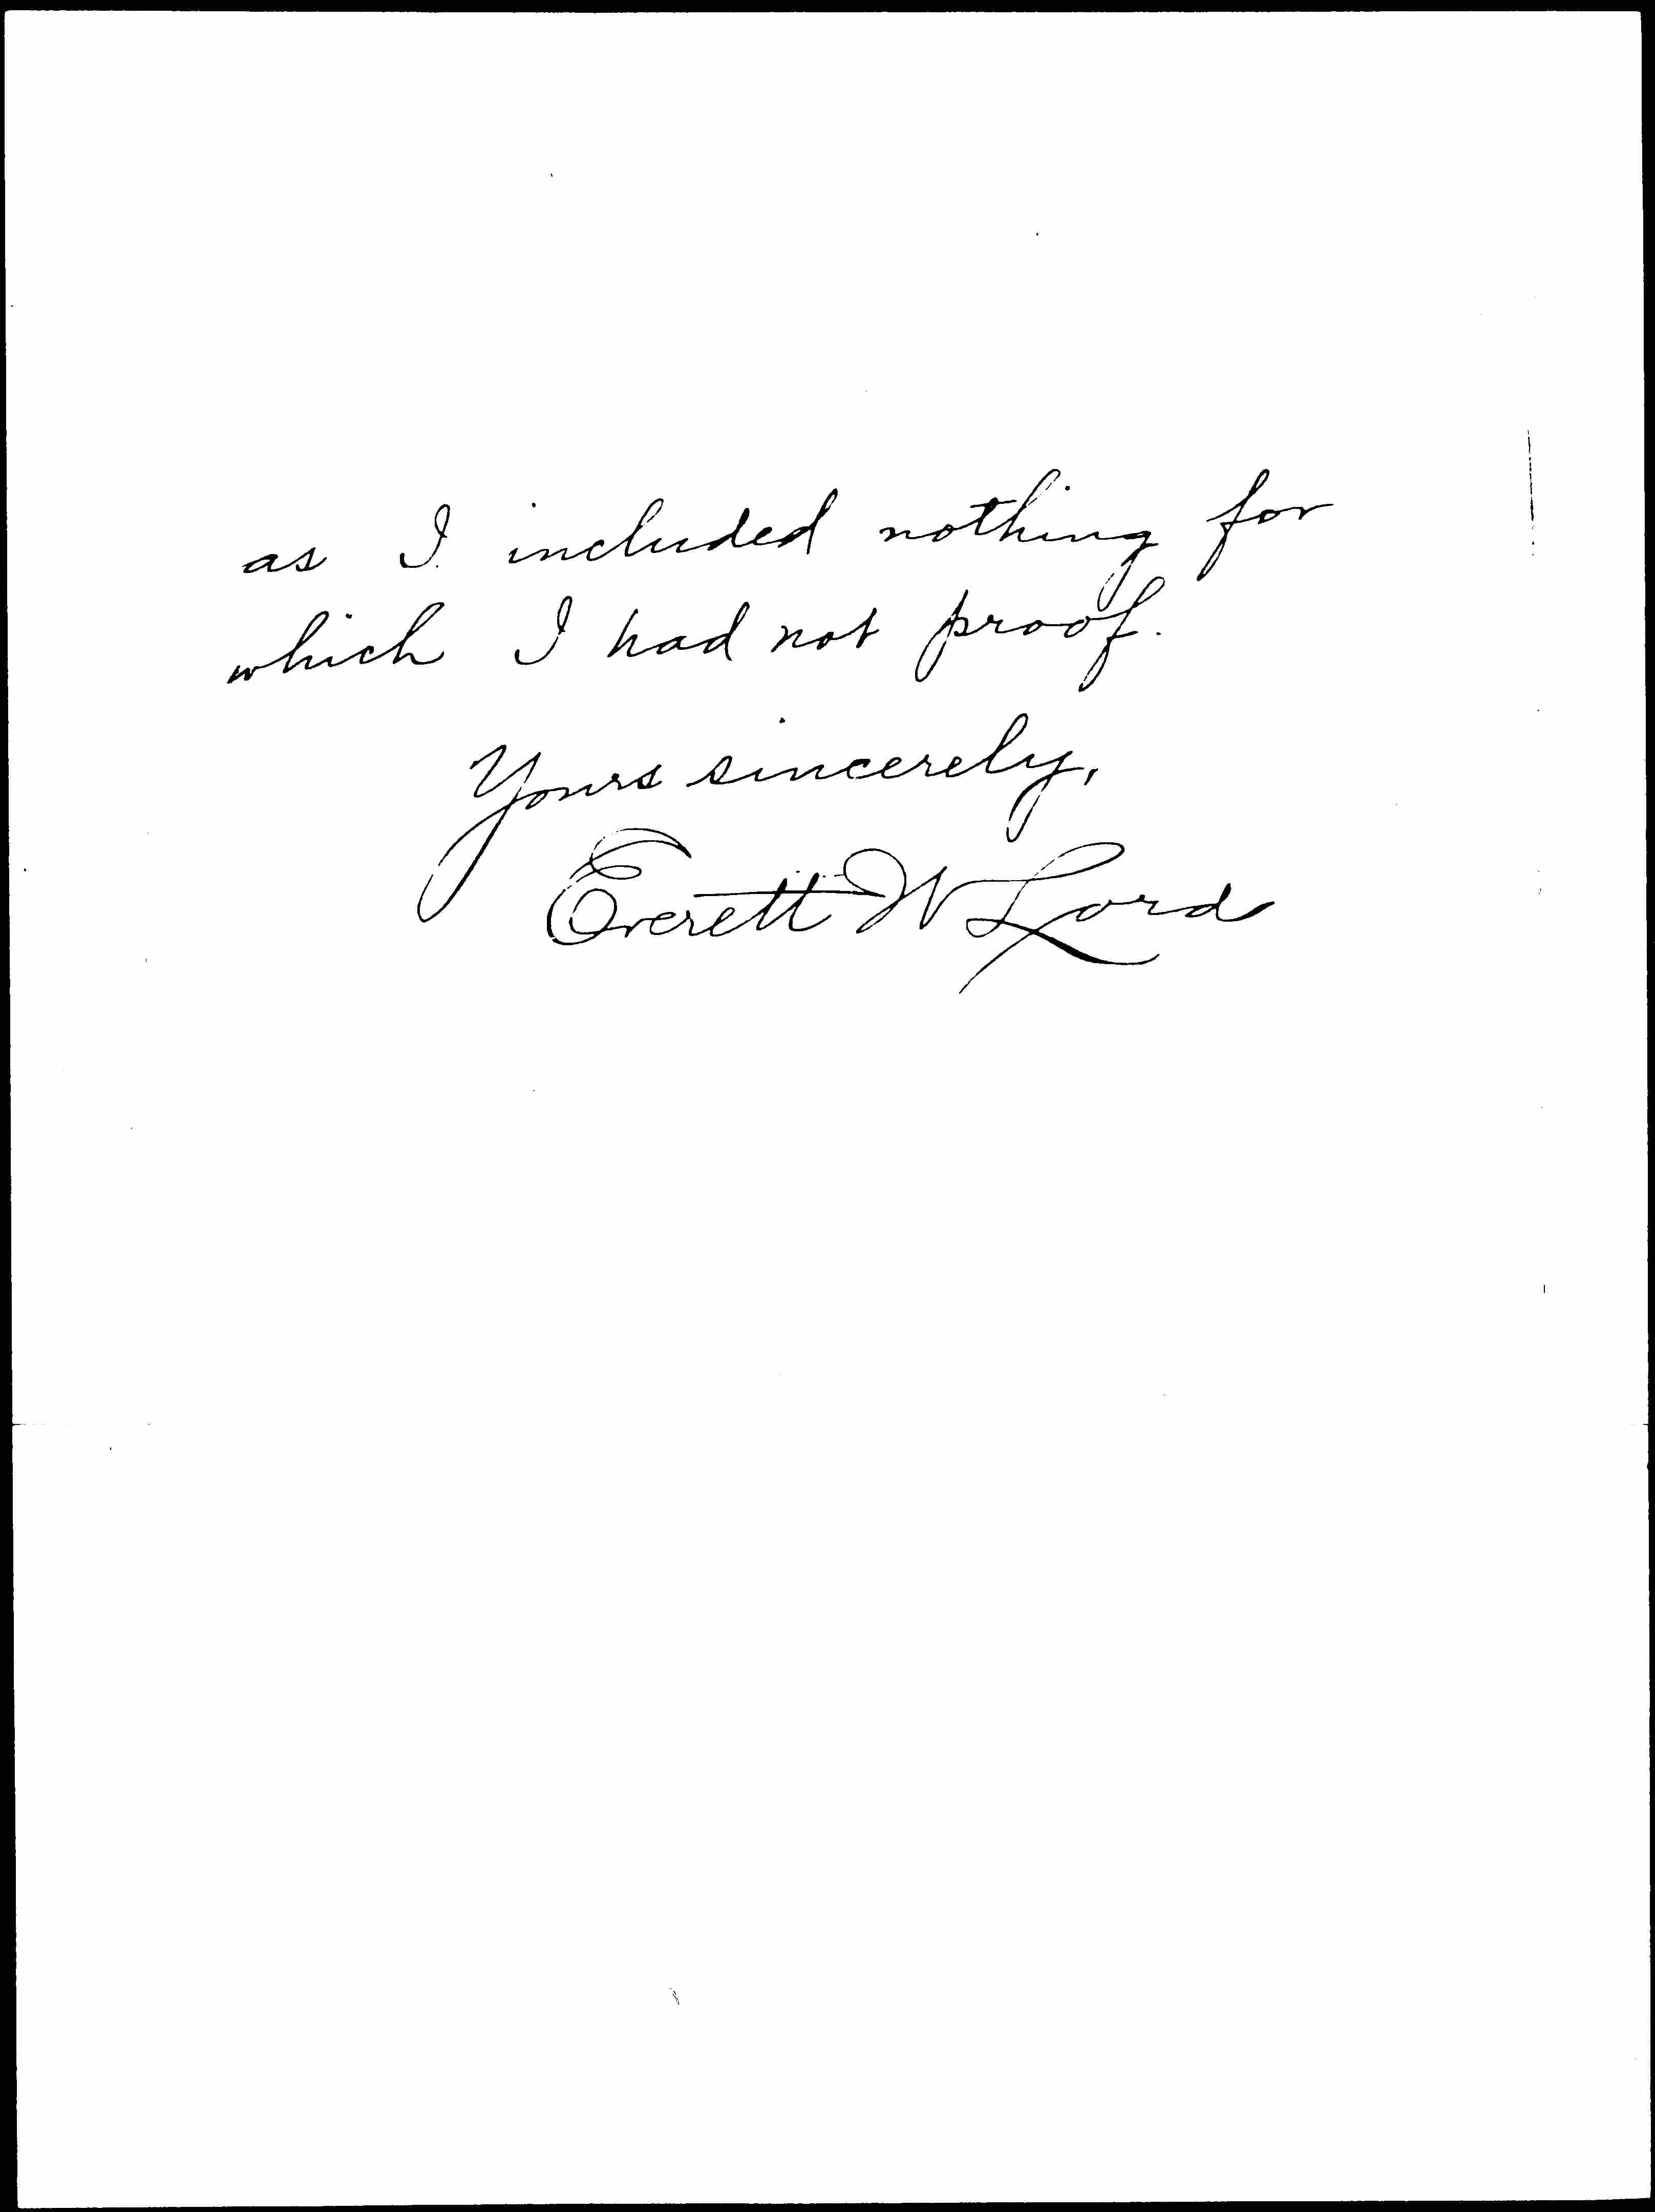 as I included nothing for
which I had not proof.
Yours sincerely,
Everett W Lord